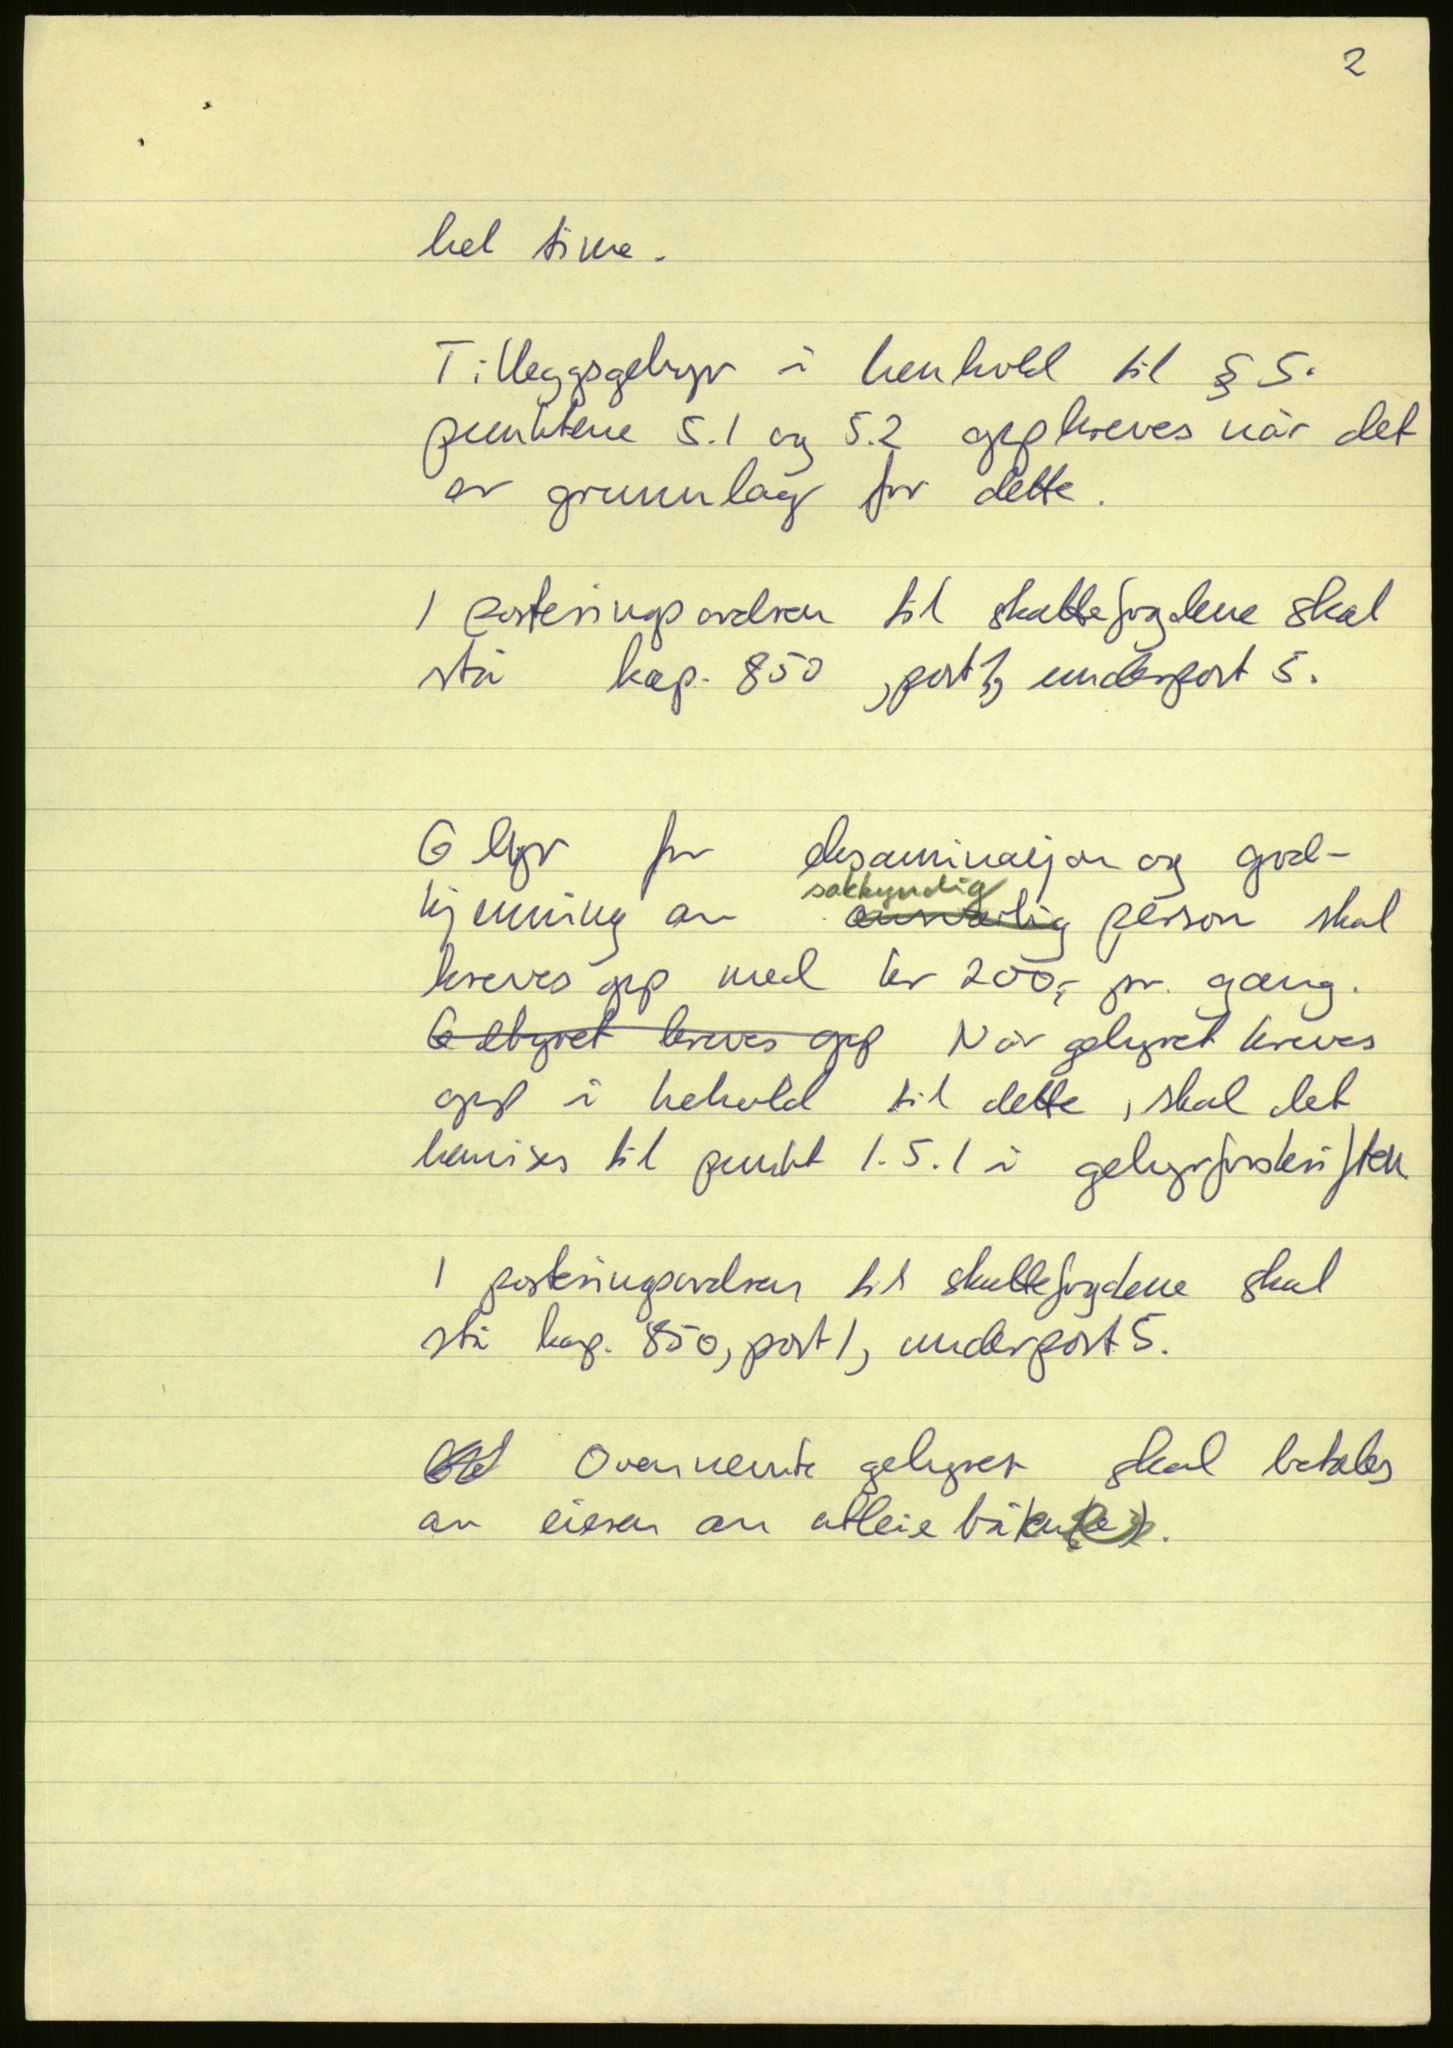 2
hel time.
Tilleggsgebyr i henhold til § 5.
punktene 5.1 og 5.2 oppkreves når det
er grunnlag for dette.
I posteringsordren til skattefogdene skal
stå kap. 850, post 1, underpost 5.
Gebyr for eksaminasjon og god-
sakkyndig
kjenning av ansvarlig person skal
kreves opp med kr 200,- pr. gang.
Gebyret kreves opp Når gebyret kreves
opp i hehold til dette, skal det
henvises til punkt 1.5.1 i gebyrforskriften
I posteringsordren til skattefogdene skal
stå kap. 850, post 1, underpost 5.
Ovennevnte gebyret skal betales
av eieren av utleiebåten(e).